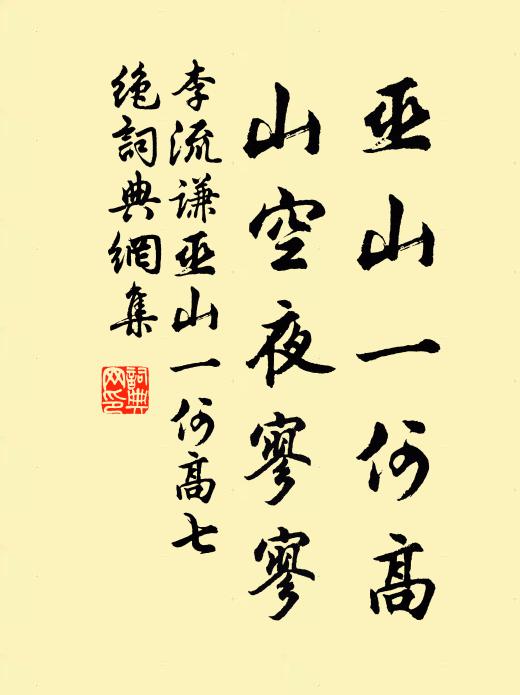 巫山一何高
山空夜寥寥
李流謙巫山一何高七
絶詞典網集
詞典
网印